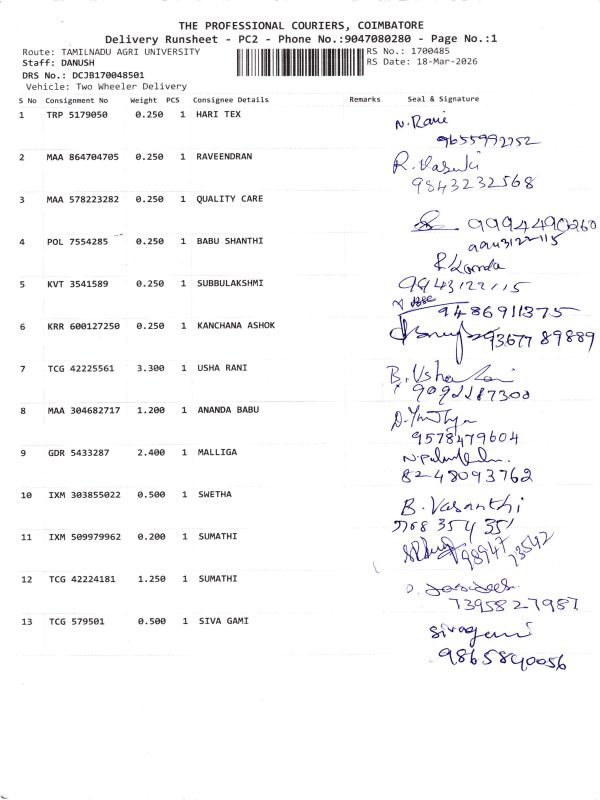 THE PROFESSIONAL COURIERS, COIMBATORE
Delivery Runsheet - PC2 - Phone No.:9047080280 - Page No.:1
Route: TAMILNADU AGRI UNIVERSITY RS No.: 1700485
Staff: DANUSH RS Date: 18-Mar-2026
DRS No.: DCJB170048501
Vehicle: Two Wheeler Delivery
S No Consignment No Weight PCS Consignee Details Remarks Seal & Signature
1 TRP 5179050 0.250 1 HARI TEX
N. Rani
9655992252
2 MAA 864704705 0.250 1 RAVEENDRAN
R. Vasuki
9843232568
3 MAA 578223282 0.250 1 QUALITY CARE
9994490260
4 POL 7554285 0.250 1 BABU SHANTHI
9943122115
5 KVT 3541589 0.250 1 SUBBULAKSHMI
9943122115
9486911375
6 KRR 600127250 0.250 1 KANCHANA ASHOK
93677 89889
7 TCG 42225561 3.300 1 USHA RANI
B. Usha Rani
9092287300
8 MAA 304682717 1.200 1 ANANDA BABU
9578479604
9 GDR 5433287 2.400 1 MALLIGA
8248093762
10 IXM 303855022 0.500 1 SWETHA
B. Vasanthi
11 IXM 509979962 0.200 1 SUMATHI
98947 73542
12 TCG 42224181 1.250 1 SUMATHI
7395827987
13 TCG 579501 0.500 1 SIVA GAMI
Sivagami
9865840056